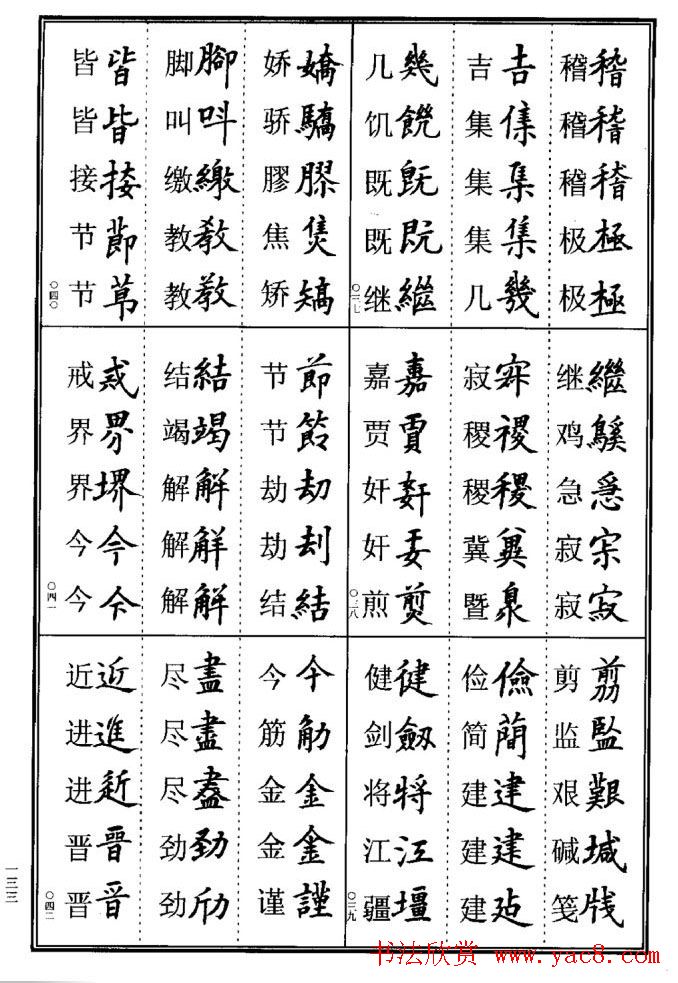 稽稽
稽稽
稽稽
极極
极極
吉吉
集集
集集
集集
几幾
几幾
饥饑
既既
既既
继繼
〇三七
继繼
鸡鷄
急急
寂
寂寂
寂
稷稷
稷稷
冀
暨
嘉嘉
贾賈
奸姧
奸
煎
〇三八
剪剪
监監
艰艱
碱堿
笺牋
俭儉
简蕳
建建
建建
建
健健
剑劔
将将
江江
疆壃
〇三九
娇嬌
骄驕
膠膠
焦
矫矯
脚腳
叫呌
缴繳
教教
教教
皆皆
皆皆
接接
节節
节
〇四〇
节節
节
劫劫
劫刦
结結
结結
竭竭
解解
解觧
解解
戒戒
界界
界堺
今今
今今
〇四一
今今
筋
金金
金金
谨謹
尽盡
尽盡
尽盡
劲勁
劲
近近
进進
进
晋晉
晋晋
〇四二
一三三
书法欣赏 www.yac8.com